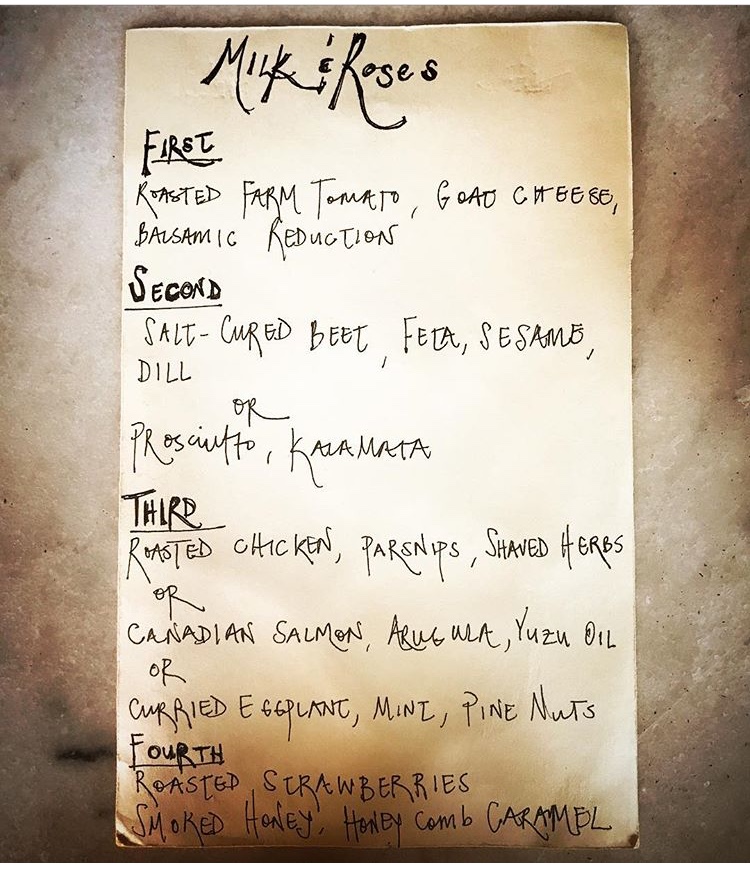 MILK & ROSES
FIRST
ROASTED FARM TOMATO, GOAT CHEESE,
BALSAMIC REDUCTION
SECOND
SALT-CURED BEET, FETA, SESAME,
DILL
OR
PROSCIUTTO, KALAMATA
THIRD
ROASTED CHICKEN, PARSNIPS, SHAVED HERBS
OR
CANADIAN SALMON, ARUGULA, YUZU OIL
OR
CURRIED EGGPLANT, MINT, PINE NUTS
FOURTH
ROASTED STRAWBERRIES
SMOKED HONEY, HONEY COMB CARAMEL